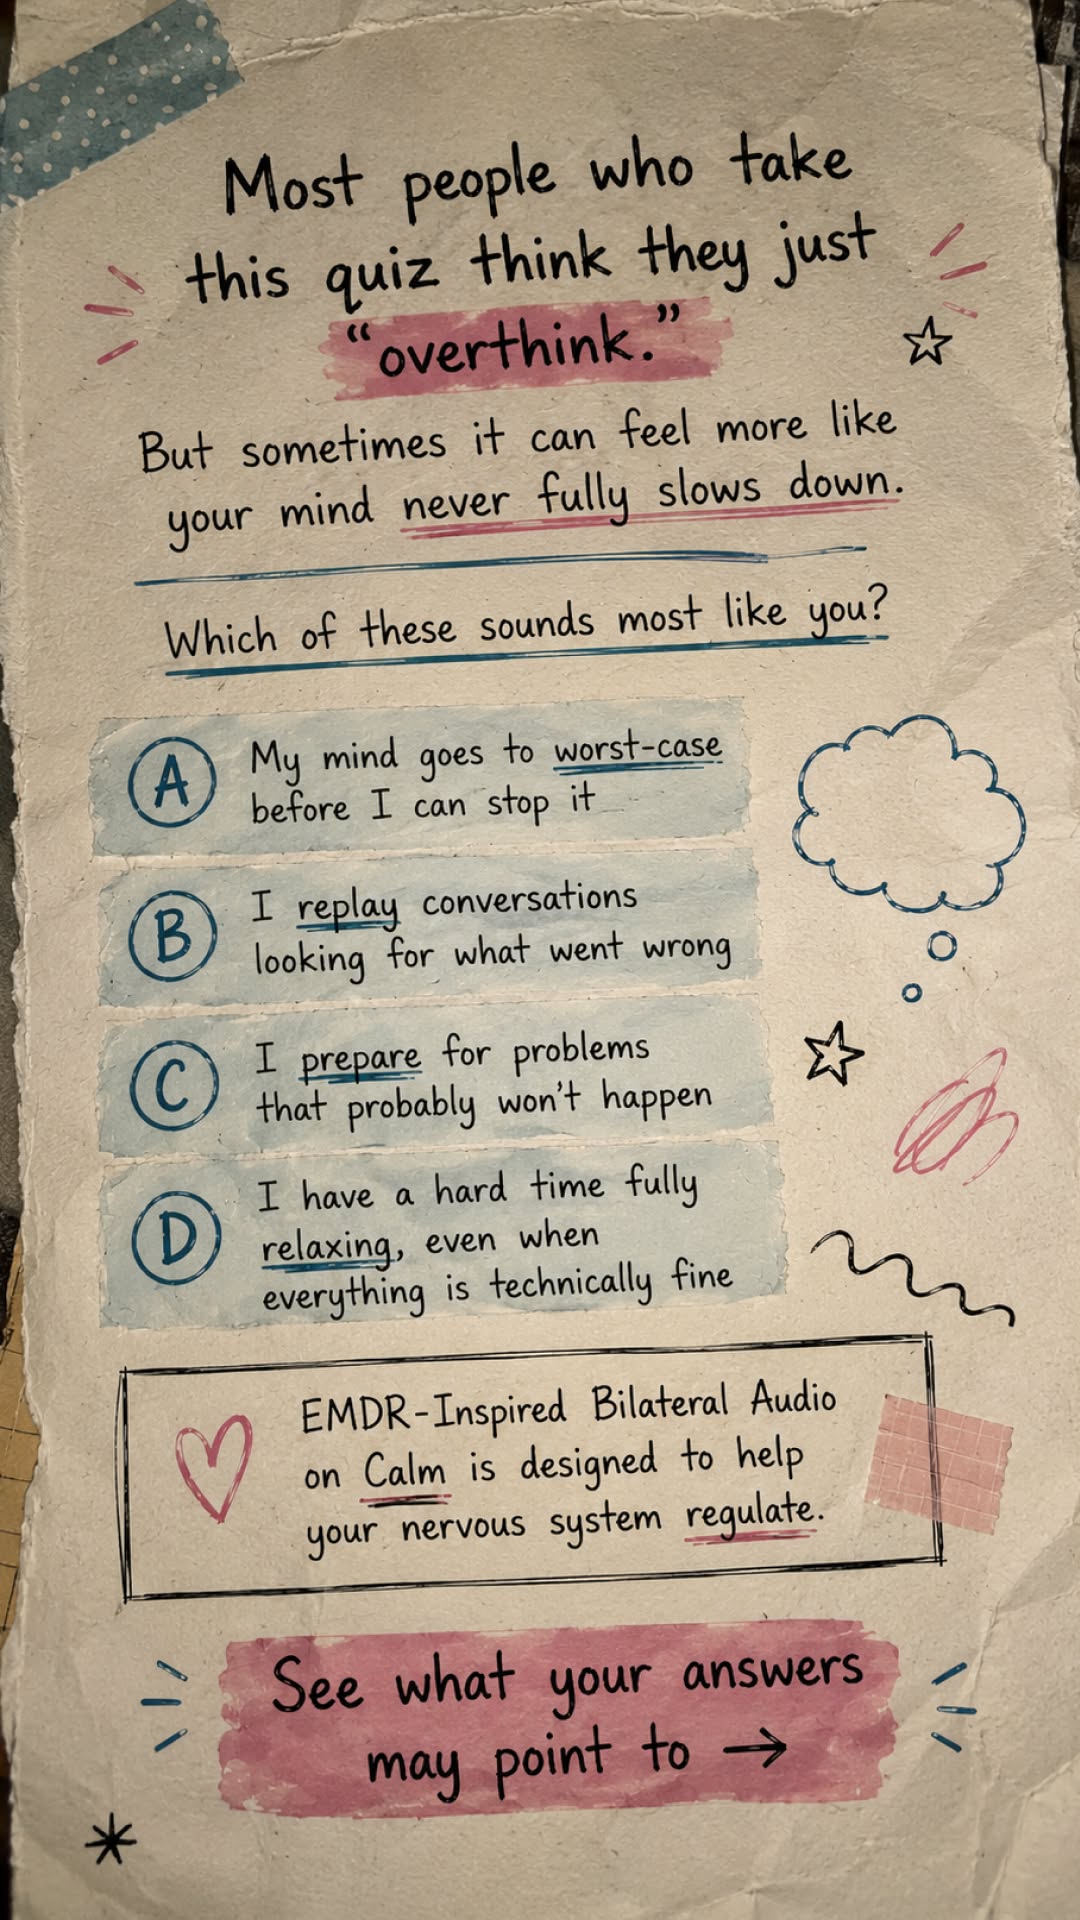 Most people who take
this quiz think they just
“overthink.”
But sometimes it can feel more like
your mind never fully slows down.
Which of these sounds most like you?
A My mind goes to worst-case
before I can stop it
B I replay conversations
looking for what went wrong
C I prepare for problems
that probably won't happen
D I have a hard time fully
relaxing, even when
everything is technically fine
EMDR-Inspired Bilateral Audio
on Calm is designed to help
your nervous system regulate.
See what your answers
may point to →